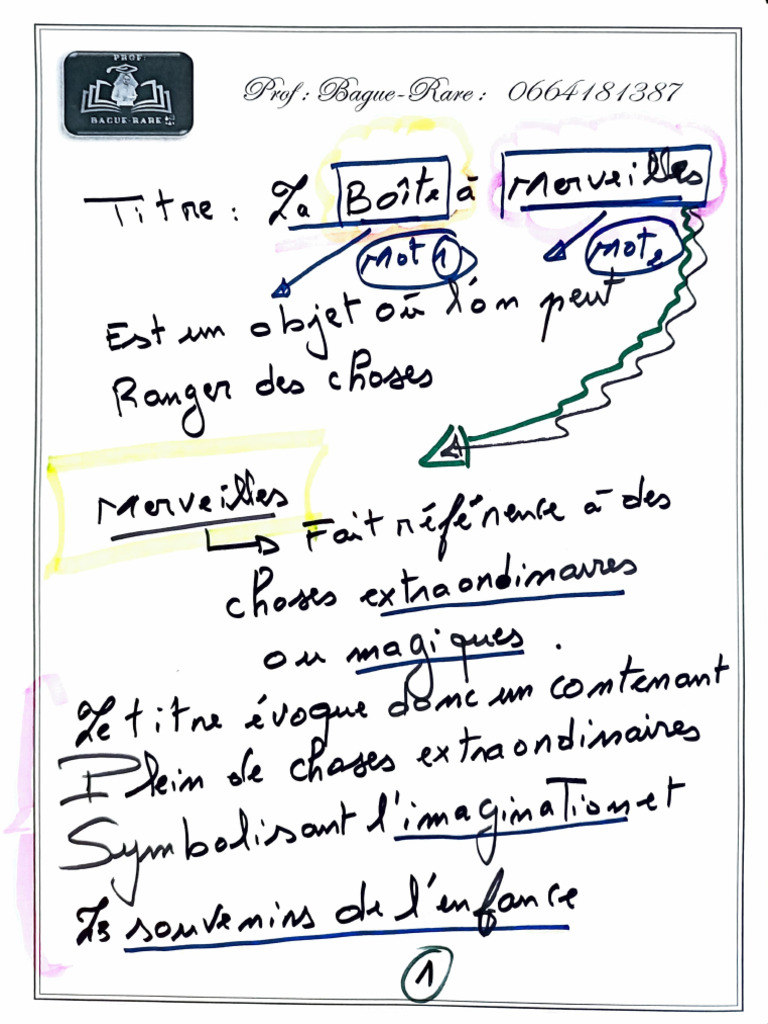 PROF:
BAGUE-RARE
Prof : Bague-Rare : 0664181387
Titre : La Boîte à Merveilles
Mot 1
Mot 2
Est un objet où l'on peut
Ranger des choses
Merveilles
Fait référence à des
choses extraordinaires
ou magiques.
Le titre évoque donc un contenant
Plein de choses extraordinaires
Symbolisant l'imagination et
Les souvenirs de l'enfance
1